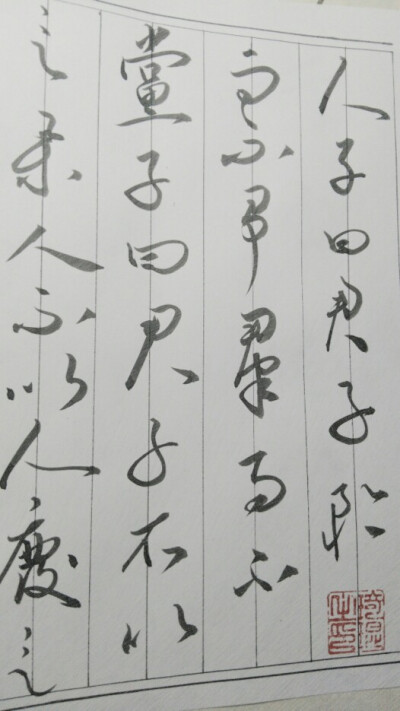 人子曰君子矜
而不爭羣而不
黨子曰君子不以
言舉人不以人廢言